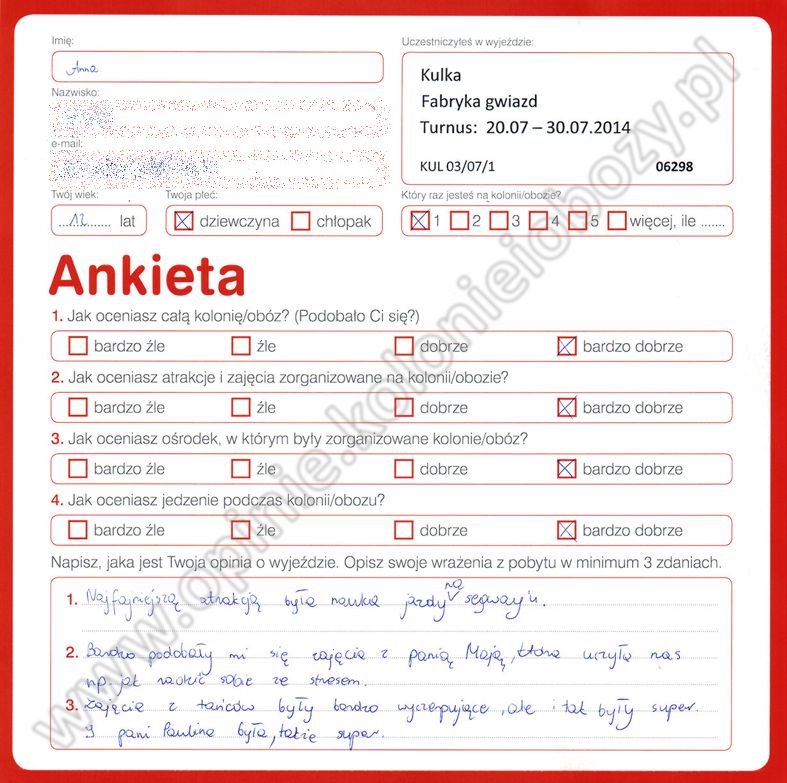 Imię:
Anna
Uczestniczyłeś w wyjeździe:
Kulka
Fabryka gwiazd
Turnus: 20.07 – 30.07.2014
KUL 03/07/1 06298
Nazwisko:
e-mail:
Twój wiek:
...12....... lat
Twoja płeć:
dziewczyna chłopak
Który raz jesteś na kolonii/obozie?
1 2 3 4 5 więcej, ile .......
Ankieta
1. Jak oceniasz całą kolonię/obóz? (Podobało Ci się?)
bardzo źle źle dobrze bardzo dobrze
2. Jak oceniasz atrakcje i zajęcia zorganizowane na kolonii/obozie?
bardzo źle źle dobrze bardzo dobrze
3. Jak oceniasz ośrodek, w którym były zorganizowane kolonie/obóz?
bardzo źle źle dobrze bardzo dobrze
4. Jak oceniasz jedzenie podczas kolonii/obozu?
bardzo źle źle dobrze bardzo dobrze
Napisz, jaka jest Twoja opinia o wyjeździe. Opisz swoje wrażenia z pobytu w minimum 3 zdaniach.
1. Najfajniejszą atrakcją była nauka jazdy na segway'u.
2. Bardzo podobały mi się zajęcia z panią Mają, która uczyła nas
np. jak radzić sobie ze stresem.
3. Zajęcia z tańców były bardzo wyczerpujące, ale i tak były super.
I pani Paulina była, także super.
www.opinie.kolonieiobozy.pl